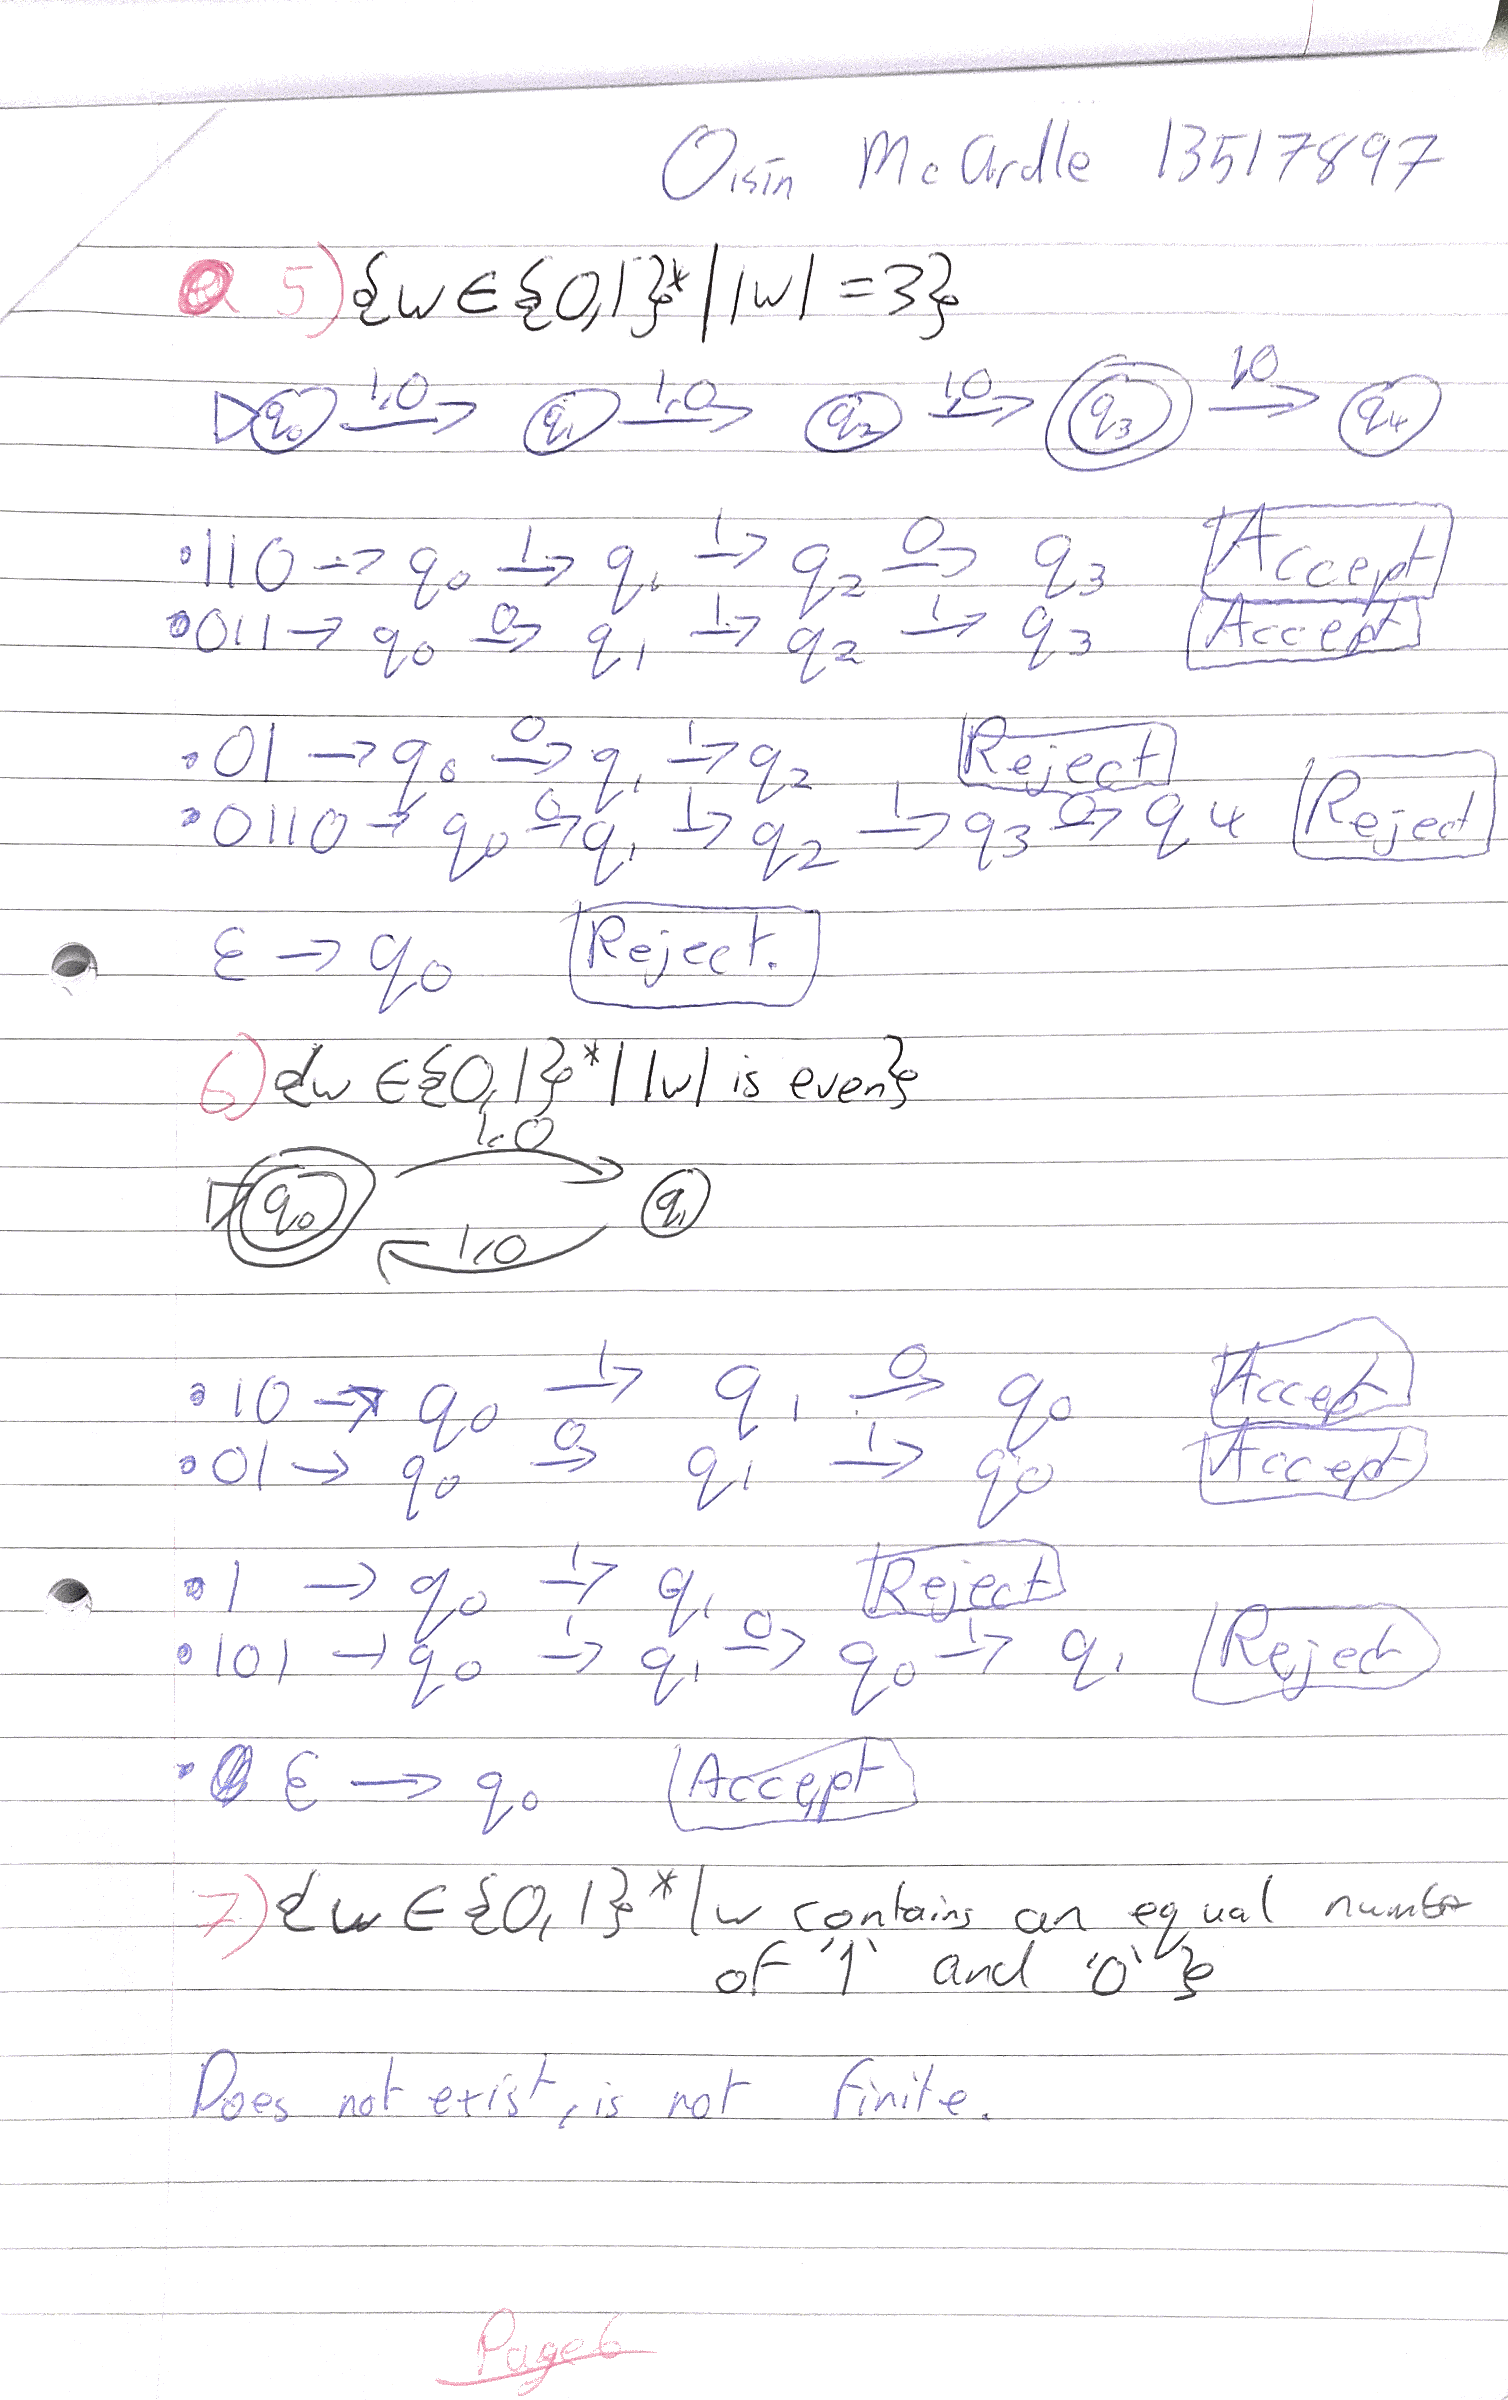 Oisín McArdle 13517897
Q 5) {w ∈ {0,1}* | |w| = 3}
1,0 1,0 1,0 1,0
q0 q1 q2 q3 q4
• 110 → q0 1→ q1 1→ q2 0→ q3 Accept
• 011 → q0 0→ q1 1→ q2 1→ q3 Accept
• 01 → q0 0→ q1 1→ q2 Reject
• 0110 → q0 0→ q1 1→ q2 1→ q3 0→ q4 Reject
ε → q0 Reject.
6) {w ∈ {0,1}* | |w| is even}
1,0
q0 q1
1,0
• 10 → q0 1→ q1 0→ q0 Accept
• 01 → q0 0→ q1 1→ q0 Accept
• 1 → q0 1→ q1 Reject
• 101 → q0 1→ q1 0→ q0 1→ q1 Reject
• ε → q0 Accept
7) {w ∈ {0,1}* | w contains an equal number
of '1' and '0'}
Does not exist, is not finite.
Page 6